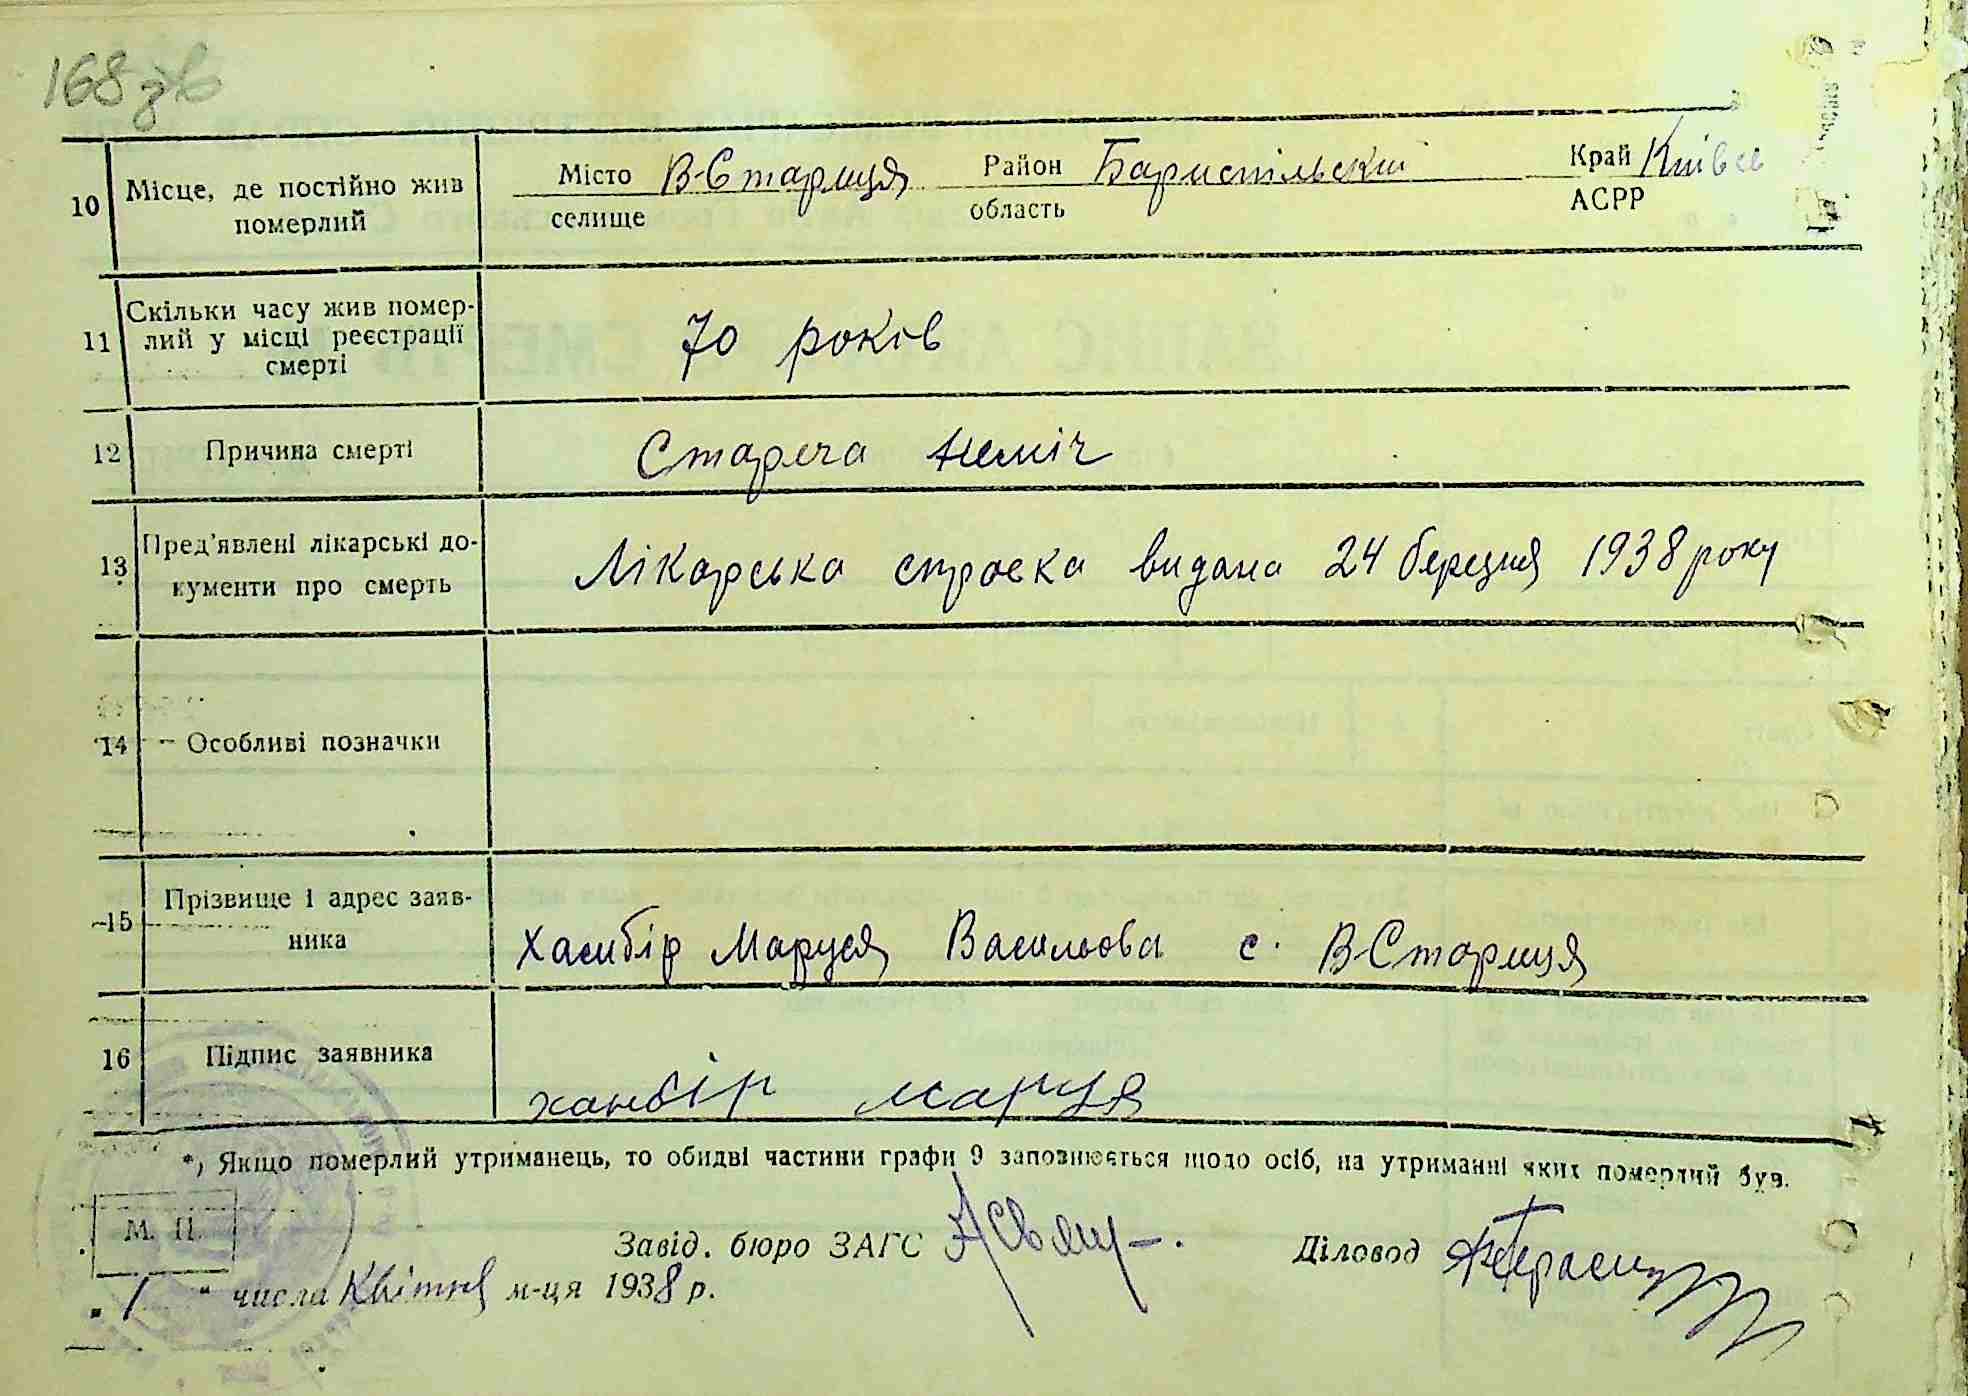 168 зв
10 Місце, де постійно жив померлий
Місто В-Стариця Район Бариспільский Край Київсь
селище область АСРР
11 Скільки часу жив помер-
лий у місці реєстрації
смерті
70 років
12 Причина смерті
Стареча неміч
13 Пред'явлені лікарські до-
кументи про смерть
Лікарська справка видана 24 березня 1938 року
14 Особливі позначки
15 Прізвище і адрес заяв-
ника
Ханбір Маруся Васильова с. В-Стариця
16 Підпис заявника
ханбір маруся
*) Якщо померлий утриманець, то обидві частини графи 9 заповнюється щодо осіб, на утриманні яких померлий був.
М. П.
Завід. бюро ЗАГС
Діловод
„ 1 " числа Квітня м-ця 1938 р.